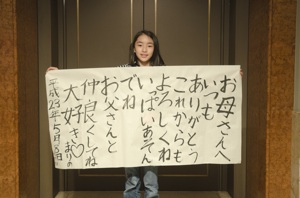 お母さんへ
いつも
ありがとう
これからも
よろしくね
いっぱいあそん
でね
お父さんと
仲良くしてね
大好き♡
平成23年5月8日